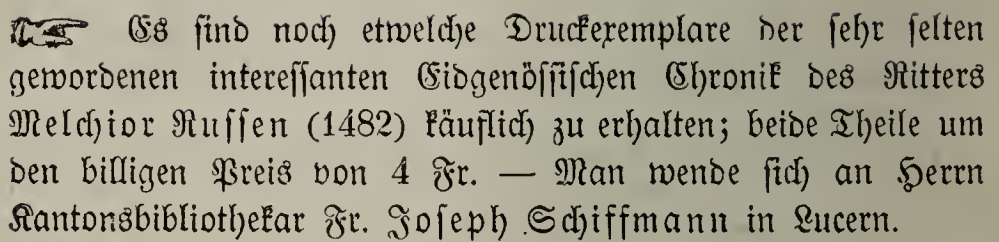 ☞ Es sind noch etwelche Druckexemplare der sehr selten
gewordenen interessanten Eidgenössischen Chronik des Ritters
Melchior Russen (1482) käuflich zu erhalten; beide Theile um
den billigen Preis von 4 Fr. — Man wende sich an Herrn
Kantonsbibliothekar Fr. Joseph Schiffmann in Lucern.